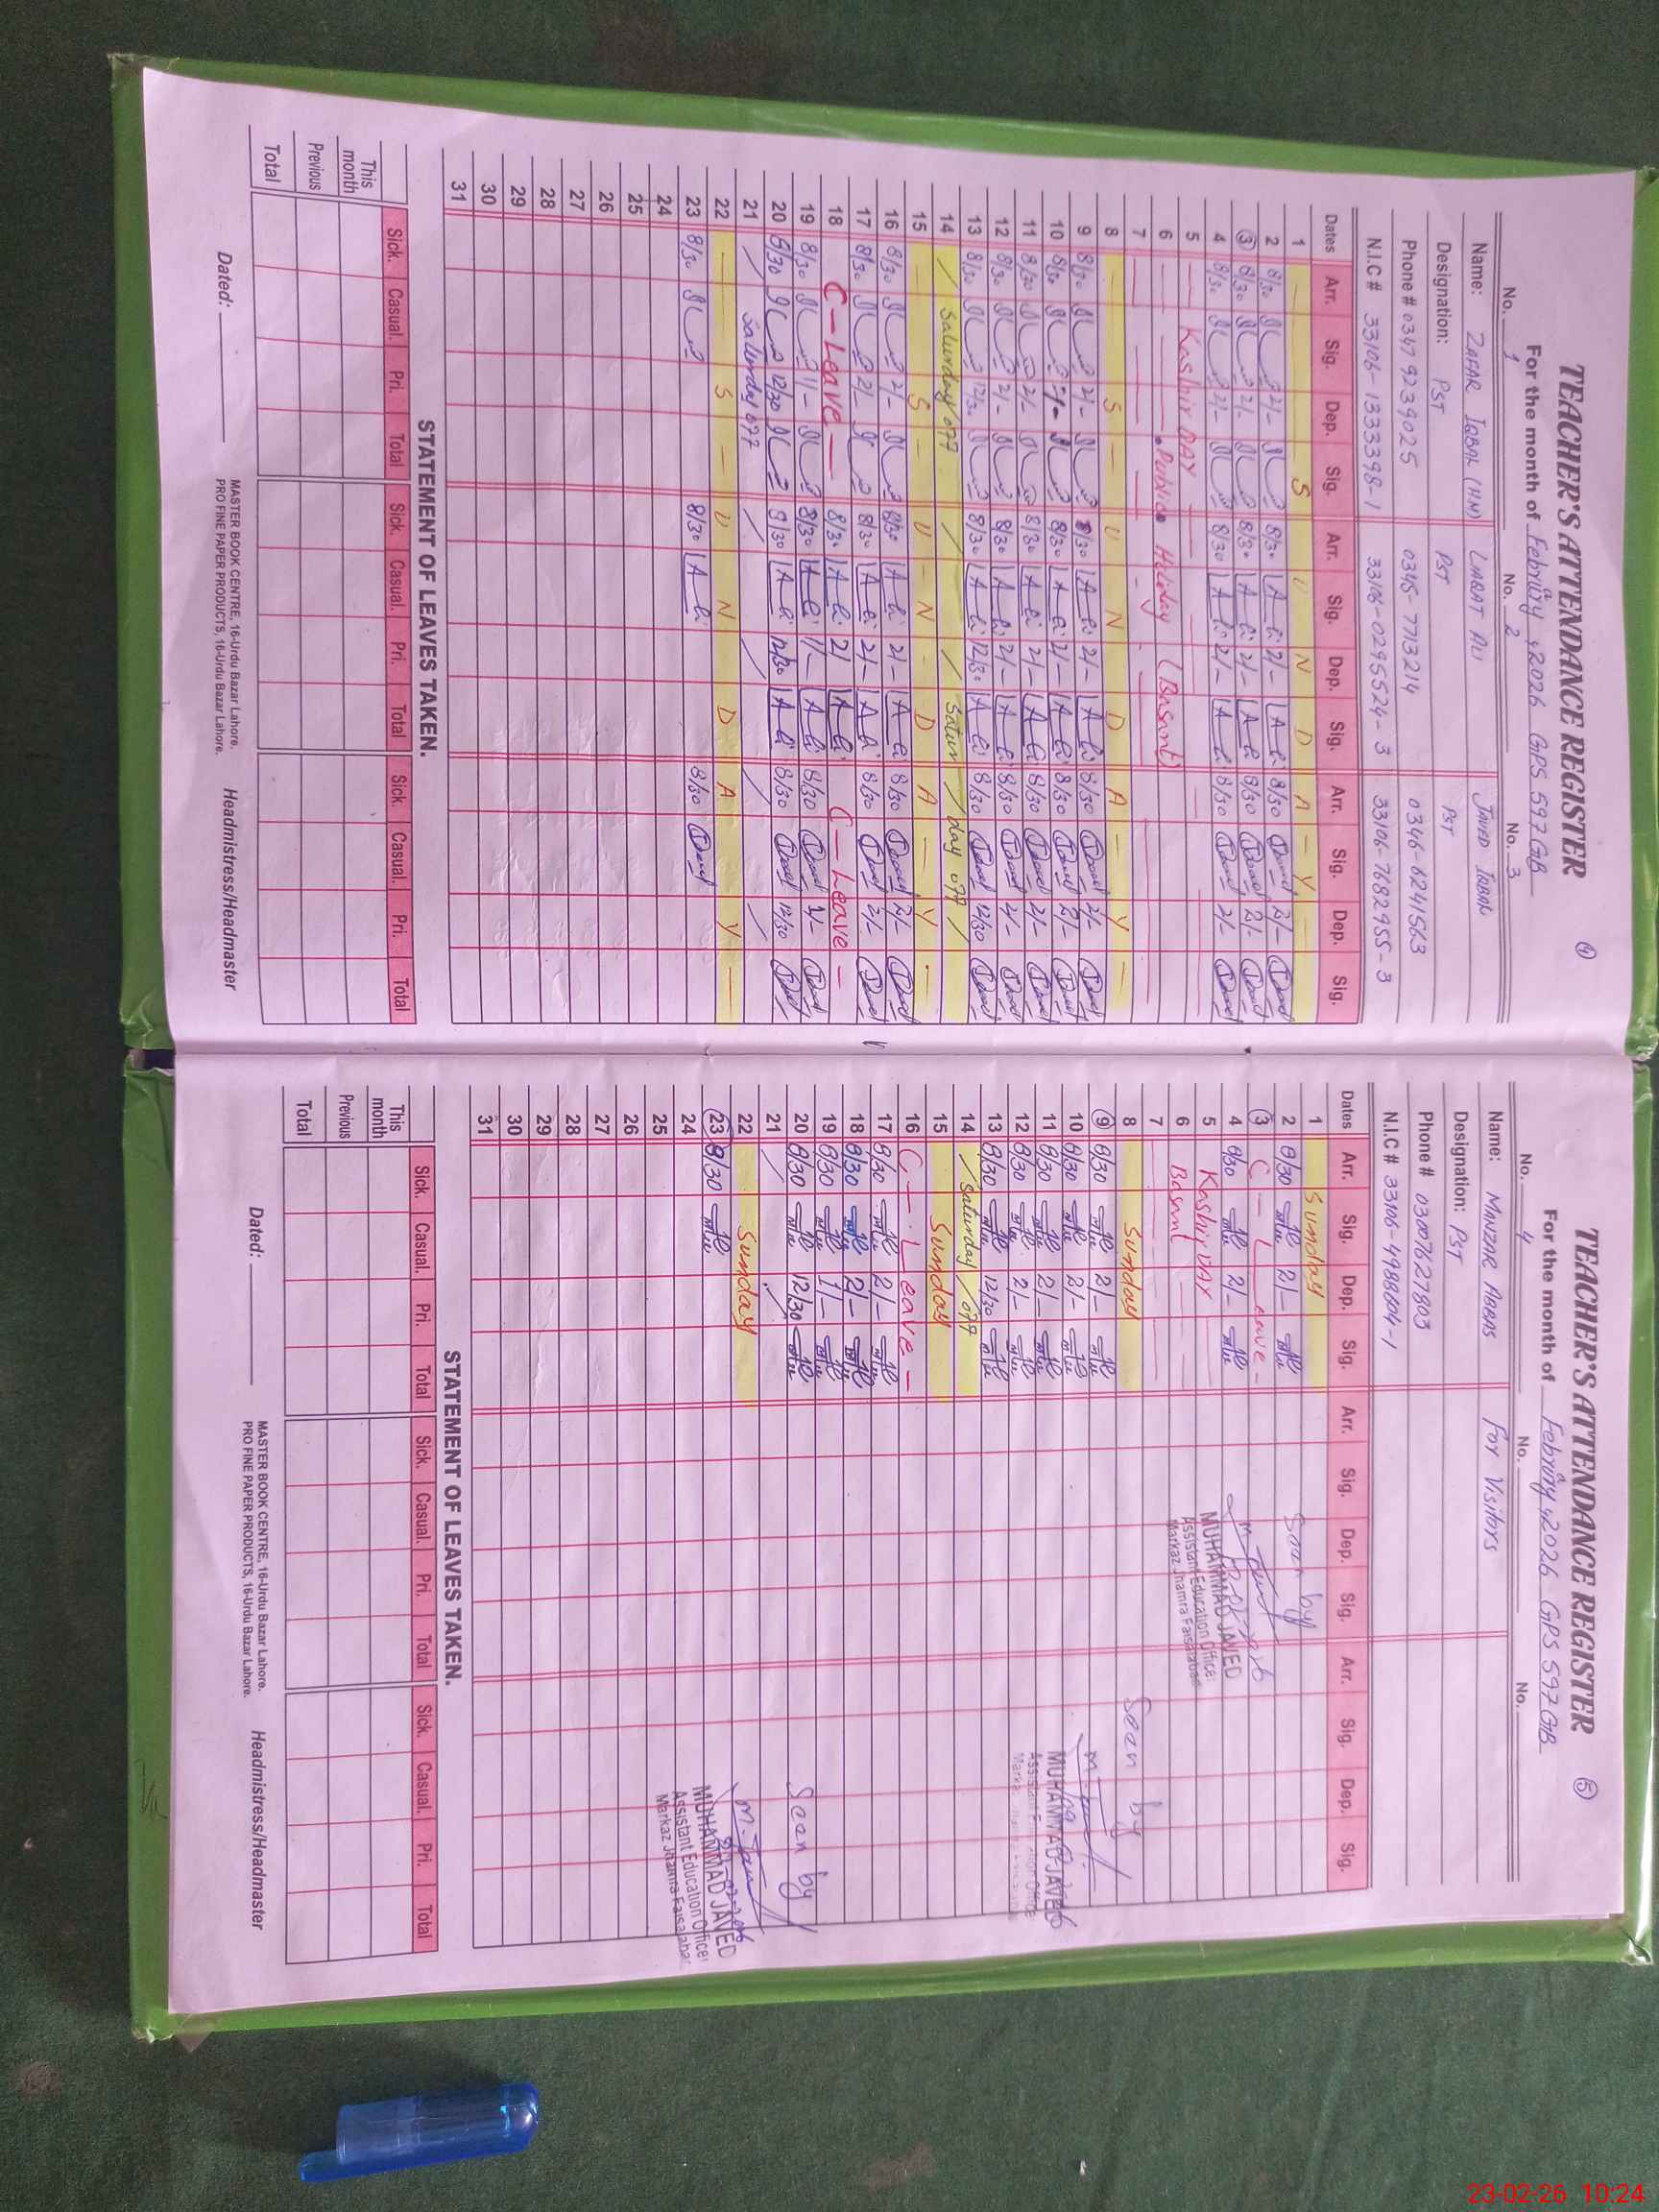 TEACHER'S ATTENDANCE REGISTER 4
For the month of Februry, 2026 GPS 597 GB
No. 1 No. 2 No. 3
Name: ZAFAR IQBAL (HM) LIAQAT ALI JAVED IQBAL
Designation: PST PST PST
Phone # 0347 9239025 0345-7713214 0346-6241563
N.I.C # 33106-1333398-1 33106-0295524-3 33106-7682955-3
Dates Arr. Sig. Dep. Sig. Arr. Sig. Dep. Sig. Arr. Sig. Dep. Sig.
1 S U N D A - Y -
2 8/30 2/- 8/30 2/- 8/30 2/-
3 8/30 2/- 8/30 2/- 8/30 2/-
4 8/30 2/- 8/30 2/- 8/30 2/-
5 Kashir DAY
6 Public Holiday (Basant)
7
8 - S - U N D A - Y -
9 8/30 2/- 8/30 2/- 8/30 2/-
10 8/30 2/- 8/30 2/- 8/30 2/-
11 8/30 2/- 8/30 2/- 8/30 2/-
12 8/30 2/- 8/30 2/- 8/30 2/-
13 8/30 12/30 8/30 12/30 8/30 12/30
14 / Saturday off / / Satur / day off /
15 - S - U - N - D A - Y -
16 8/30 2/- 8/30 2/- 8/30 2/-
17 8/30 2/- 8/30 2/- 8/30 2/-
18 C - Leave - 8/30 2/ C - Leave -
19 8/30 1/- 8/30 1/- 8/30 1/-
20 8/30 12/30 8/30 12/30 8/30 12/30
21 / Saturday off / / / / /
22 - S - U N D A - Y -
23 8/30 8/30 8/30
24
25
26
27
28
29
30
31
STATEMENT OF LEAVES TAKEN.
Sick. Casual. Pri. Total Sick. Casual. Pri. Total Sick. Casual. Pri. Total
This month
Previous
Total
MASTER BOOK CENTRE, 16-Urdu Bazar Lahore.
PRO FINE PAPER PRODUCTS, 16-Urdu Bazar Lahore.
Dated: Headmistress/Headmaster
TEACHER'S ATTENDANCE REGISTER 5
For the month of Februry, 2026 GPS 597 GB
No. 4 No. No.
Name: MANZAR ABBAS For Visitors
Designation: PST
Phone # 03007627803
N.I.C # 33106-4988604-1
Dates Arr. Sig. Dep. Sig. Arr. Sig. Dep. Sig. Arr. Sig. Dep. Sig.
1 Sunday
2 8/30 2/- Sean by
3 C - Leave -
4 8/30 2/- MUHAMMAD JAVED
5 Kashir DAY Assistant Education Officer
6 Basant Markaz Jhamra Faisalabad
7
8 Sunday Sean by
9 8/30 2/-
10 8/30 2/-
11 8/30 2/- MUHAMMAD JAVED
12 8/30 2/-
13 8/30 12/30
14 / Saturday / off
15 Sunday
16 C - Leave -
17 8/30 2/-
18 8/30 2/-
19 8/30 1/-
20 8/30 12/30 Sean by
21 / /
22 Sunday M. Javed
23 8/30 MUHAMMAD JAVED
24 Assistant Education Officer
25 Markaz Jhamra Faisalabad
26
27
28
29
30
31
STATEMENT OF LEAVES TAKEN.
Sick. Casual. Pri. Total Sick. Casual. Pri. Total Sick. Casual. Pri. Total
This month
Previous
Total
MASTER BOOK CENTRE, 16-Urdu Bazar Lahore.
PRO FINE PAPER PRODUCTS, 16-Urdu Bazar Lahore.
Dated: Headmistress/Headmaster
23-02-26 10:24